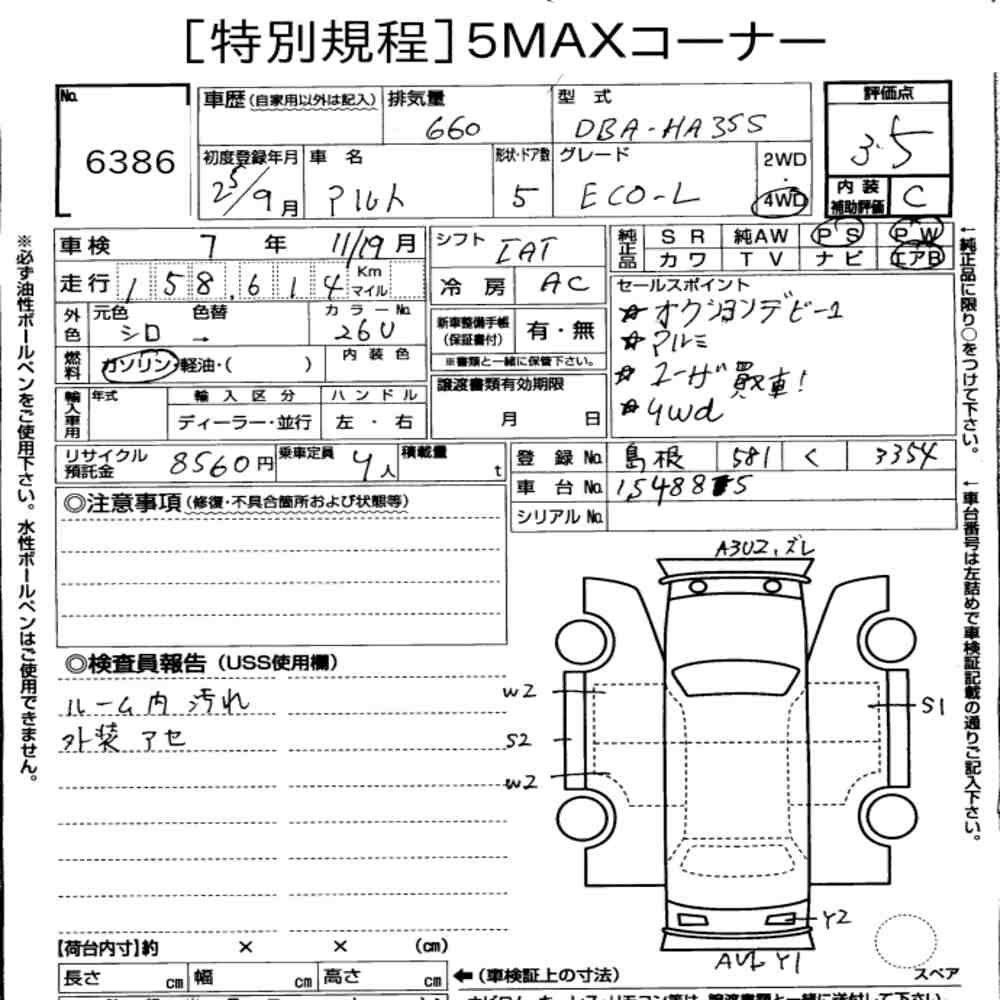 [特別規程]5MAXコーナー
No. 6386
車歴(自家用以外は記入) 排気量 660
型式 DBA-HA35S
評価点 3.5
初度登録年月 25/9月
車名 アルト
形状・ドア数 5
グレード ECO-L
2WD・4WD
内装補助評価 C
車検 7年 11/19月
走行 158,614 Km マイル
シフト IAT
冷房 AC
純正品 SR 純AW PS PW
カワ TV ナビ エアB
外色 元色 シロ 色替 → カラーNo. 26U
燃料 ガソリン・軽油・( ) 内装色
新車整備手帳(保証書付) 有・無
※書類と一緒に保管下さい。
セールスポイント
☆オークションデビュー
☆アルミ
☆ユーザー買取車!
☆4wd
輸入車用 年式 輸入区分 ハンドル
ディーラー・並行 左・右
譲渡書類有効期限
月 日
リサイクル預託金 8560円 乗車定員 4人 積載量 t
登録No. 島根 581 く 3354
車台No.
シリアルNo.
◎注意事項(修復・不具合箇所および状態等)
◎検査員報告(USS使用欄)
ルーム内 汚れ
外装 アセ
A3U2,ズレ
W2
S2
W2
S1
Y2
Y1
スペア
【荷台内寸】約 × × (cm)
長さ cm 幅 cm 高さ cm ←(車検証上の寸法)
※必ず油性ボールペンをご使用下さい。水性ボールペンはご使用できません。
←純正品に限り○をつけて下さい。
←車台番号は左詰めで車検証記載の通りご記入下さい。